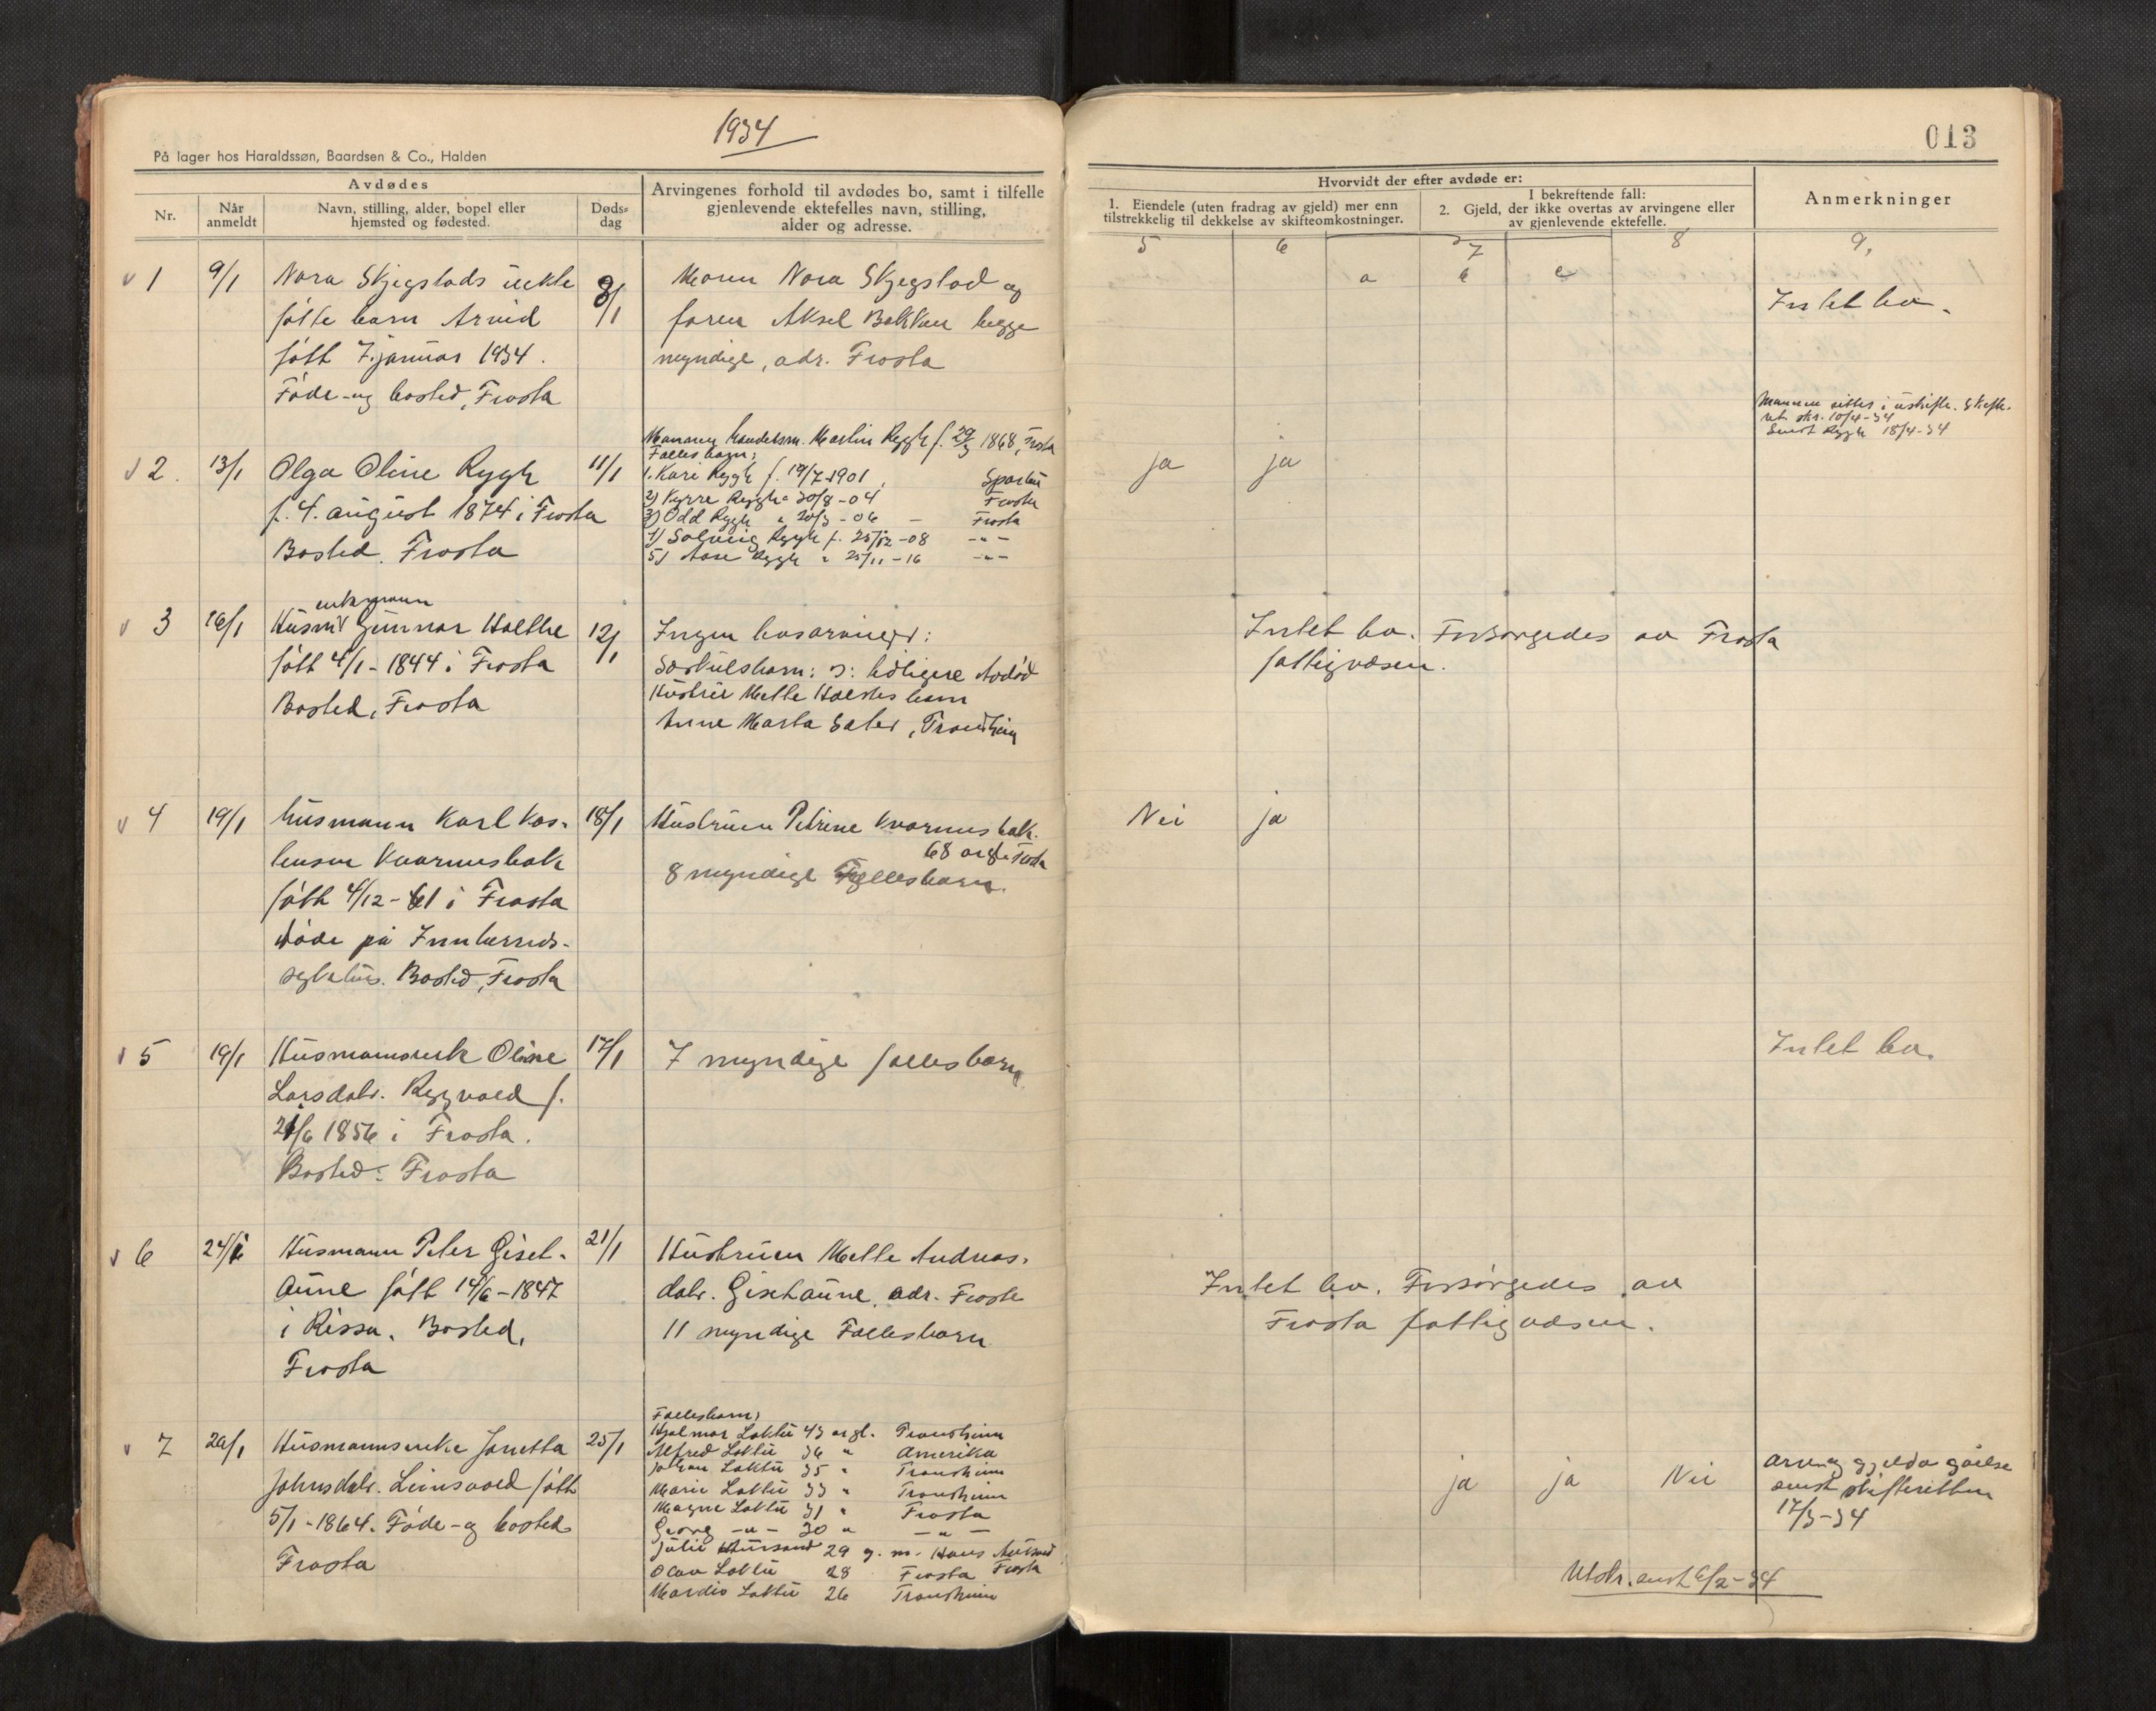 1934
013
På lager hos Haraldssøn, Baardsen & Co., Halden
Avdødes
Nr.
Når anmeldt
Navn, stilling, alder, bopel eller hjemsted og fødested.
Døds-dag
Arvingenes forhold til avdødes bo, samt i tilfelle
gjenlevende ektefelles navn, stilling,
alder og adresse.
Hvorvidt der efter avdøde er:
1. Eiendele (uten fradrag av gjeld) mer enn
tilstrekkelig til dekkelse av skifteomkostninger.
I bekreftende fall:
2. Gjeld, der ikke overtas av arvingene eller
av gjenlevende ektefelle.
Anmerkninger
5 6 7 8 9.
a b c
1 9/1 Nora Skjegstads uekte 8/1
føtte barn Arvid
født 7. januar 1934.
Føde- og bosted, Frosta
Moren Nora Skjegstad og
faren Aksel Bakken begge
myndige, adr. Frosta
Intet bo.
2. 13/1 Olga Oline Rygh 11/1
f. 4. august 1874 i Frosta
Bosted. Frosta
Mannen handelsm. Martin Rygh f. 29/3 1868, Frosta
Felles barn:
1. Kari Rygh f. 19/7 1901
2) Kyrre Rygh " 30/8 - 04 Frosta
3) Odd Rygh " 20/3 - 06 - Frosta
4) Solveig Rygh f. 25/12 - 08 -"-
5) Aase Rygh " 25/11 - 16 -"-
ja ja
Mannen sitter i uskifte. Skifte-
18/4-34
3 16/1 Husm. enkemann Gunnar Holthe 12/1
født 4/1 - 1844 i Frosta
Bosted, Frosta
Ingen livsarvinger:
Særkulsbarn: o: tidligere avdød
Hustru Mette Holthes barn
Anne Marta Sæter, Trondheim
Intet bo. Forsørgedes av Frosta
fattigvesen.
4 19/1 Husmann Karl Kas- 18/1
tensen Kvarmesbak
født 4/12 - 61 i Frosta
Døde på Innherreds-
sykehus. Bosted, Frosta
Hustruen Petrine Kvarmesbak.
68 år gl. Frosta
8 myndige Fellesbarn.
Nei ja
5 19/1 Husmannsenke Oline 17/1
Larsdatr. Ryggvold f.
21/6 1856 i Frosta.
Bosted: Frosta
7 myndige fellesbarn
Intet bo.
6 24/1 Husmann Peter Giset- 21/1
aune født 14/6 - 1847
i Rissa. Bosted,
Frosta
Hustruen Mette Andreas-
datr. Gisetaune. adr. Frosta
11 myndige Fellesbarn
Intet bo. Forsørgedes av
Frosta fattigvesen.
7 29/1 Husmannsenke Janetta 25/1
Johnsdatr. født
5/1 - 1864. Føde- og bosted
Frosta
Fellesbarn:
Hjalmar Loktu 43 år gl. Trondheim
Alfred Loktu 36 " Amerika
Johan Loktu 35 " Trondheim
Marie Loktu 33 " Trondheim
Magne Loktu 31 " Frosta
Georg -"- 30 " -"-
Julie 29 g. m. Hans Frosta
Olav Loktu 28 Frosta
Mardis Loktu 26 Trondheim
ja ja Nei
Arv og gjelds
sendt skifteretten
17/3-34
Utskr. sendt 6/2-34